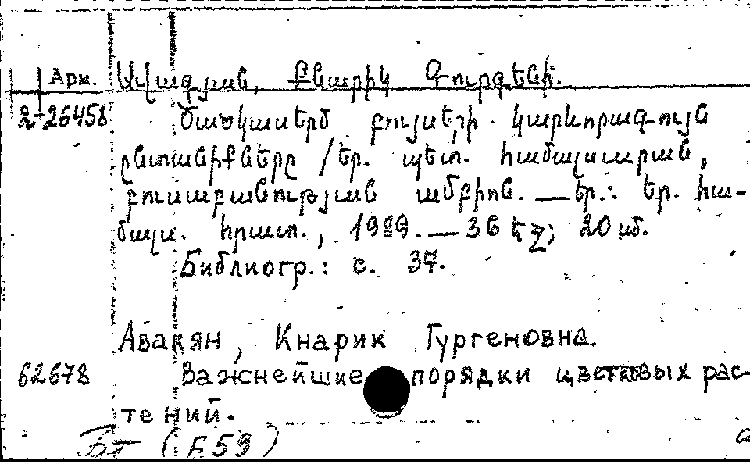 Арм. Ավագյան, Քնարիկ Գուրգենի.
2-26458 Ծածկասերմ բույսերի կարևորագույն
ընտանիքները /Եր. պետ. համալսարան,
բուսաբանության ամբիոն. — Եր.: Եր. հա-
մալս. հրատ., 1989. — 36 էջ; 20 սմ.
Библиогр.: с. 37.
Авакян, Кнарик Гургеновна.
62678 Важнейшие порядки цветковых рас-
тений.
(Б59)